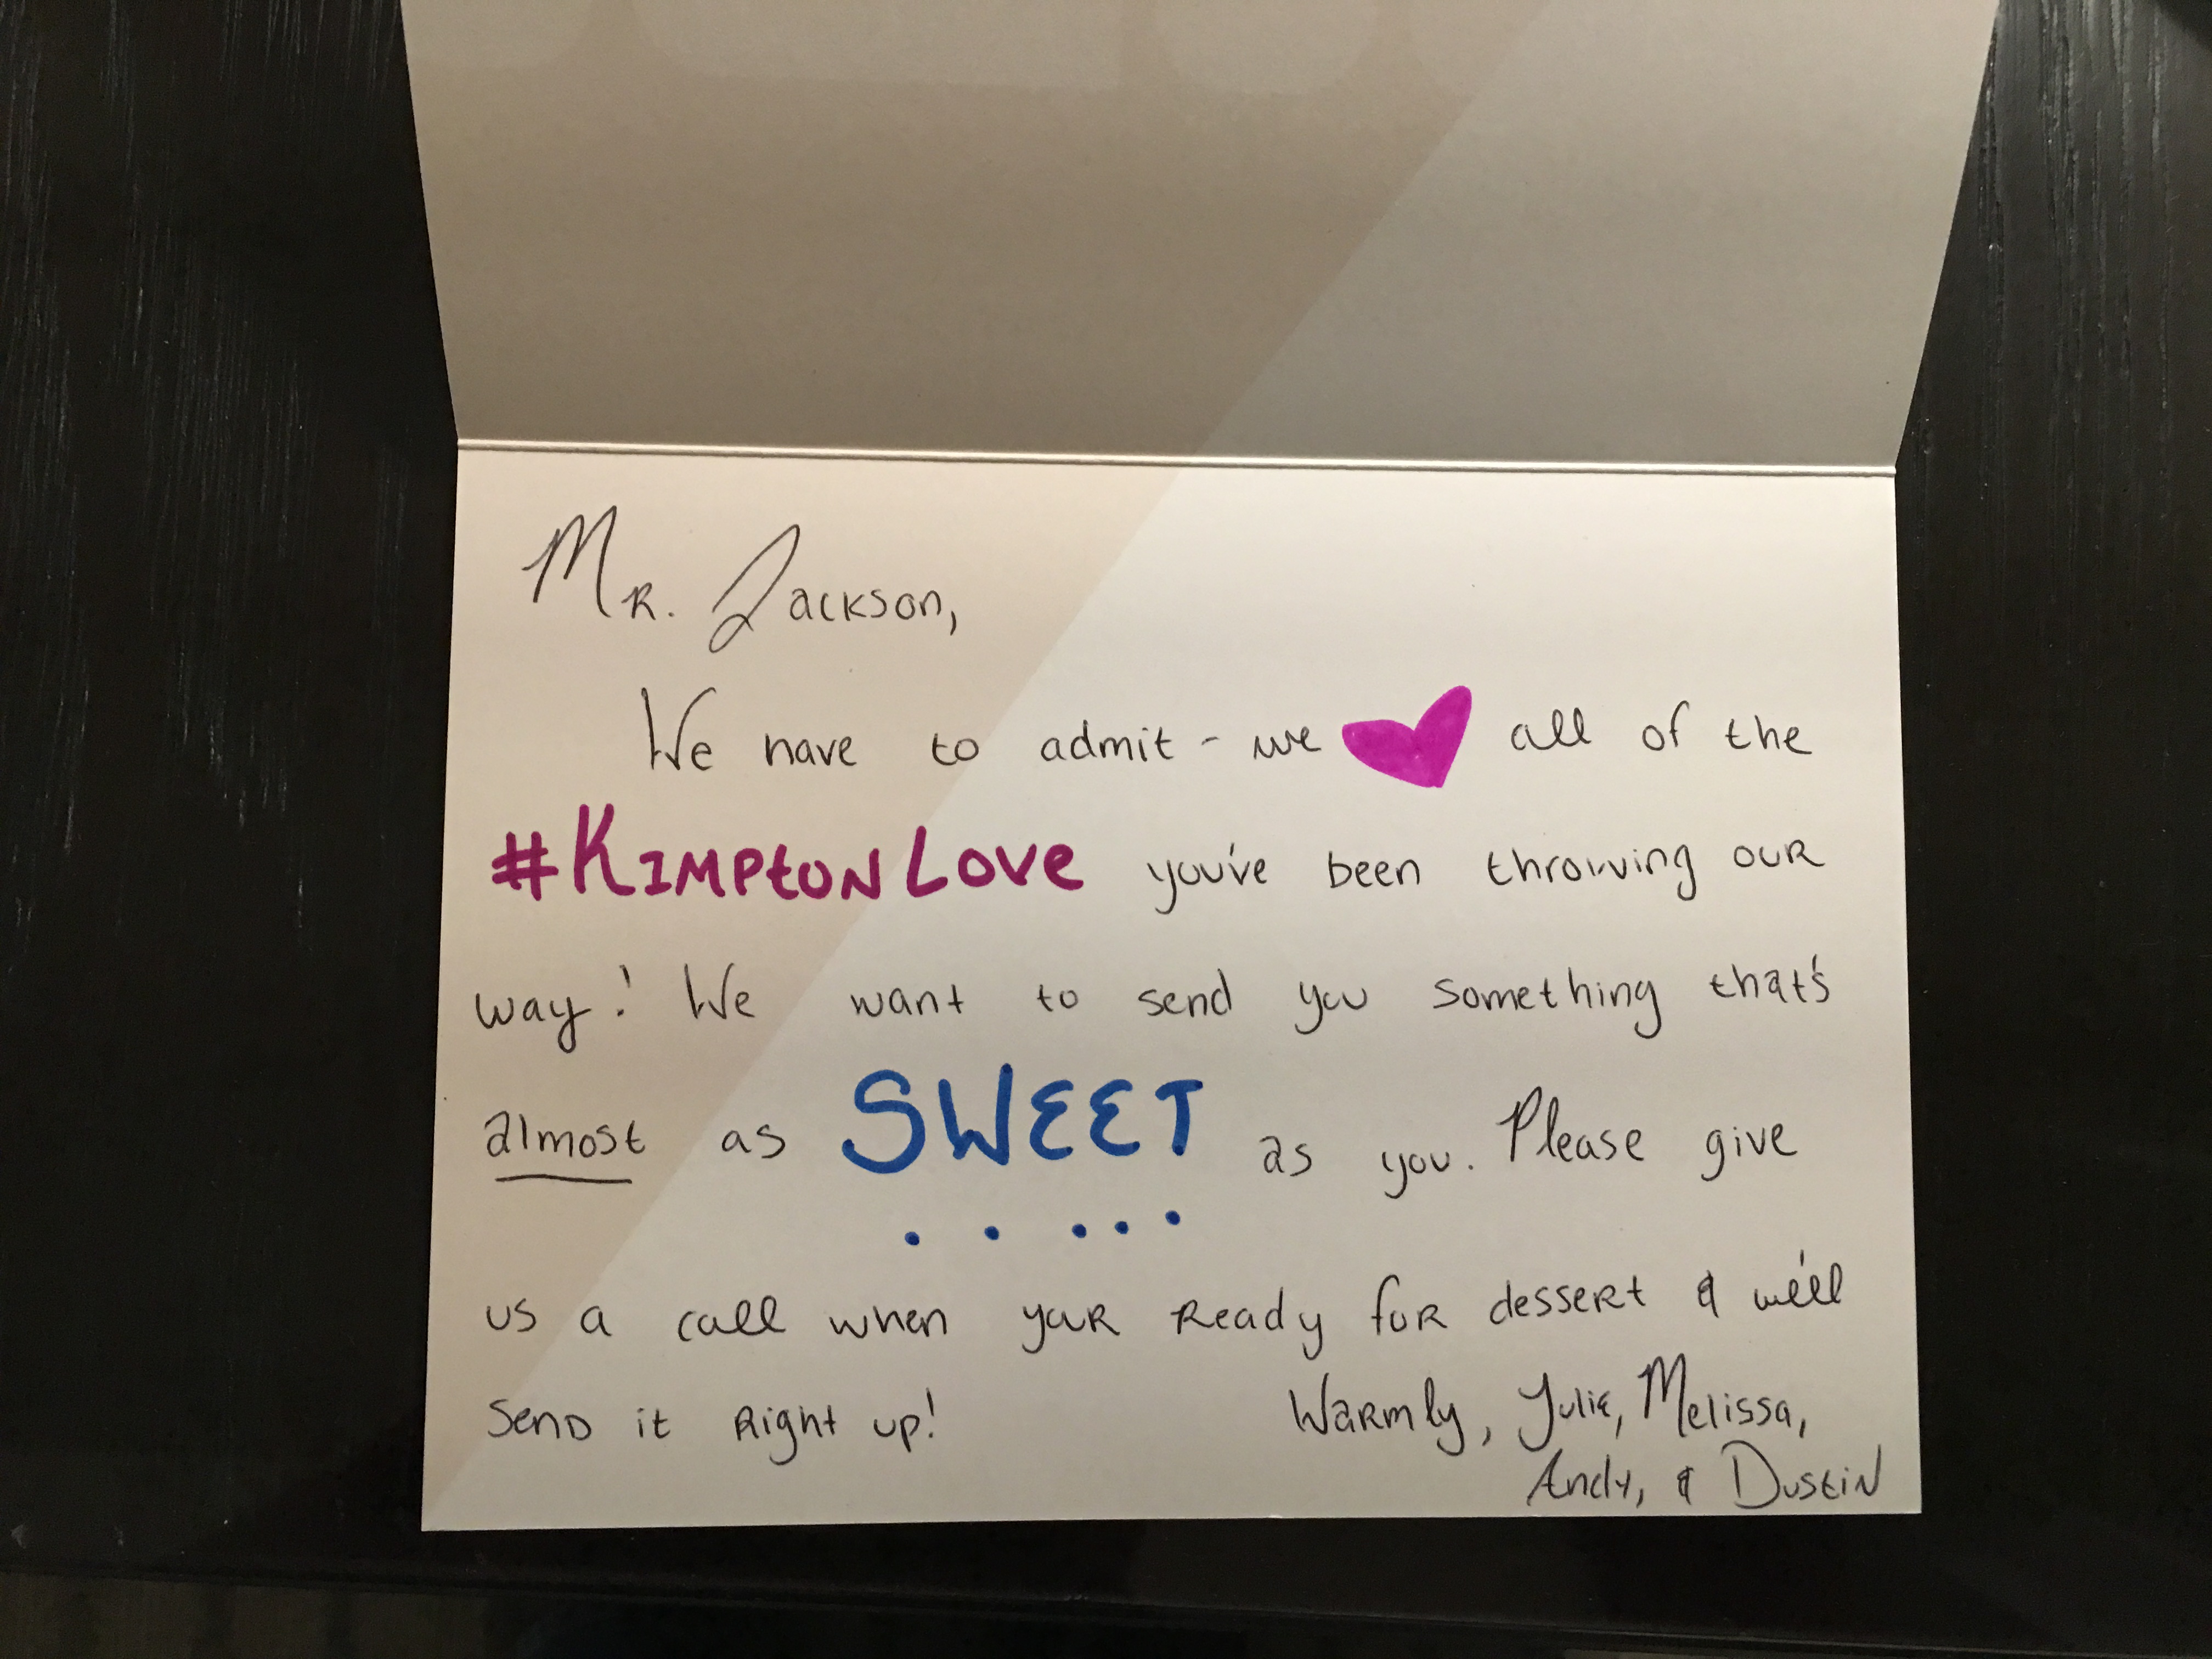 Mr. Jackson,
We have to admit - we ♥ all of the
#KimptonLove you've been throwing our
way! We want to send you something that's
almost as SWEET as you. Please give
us a call when your ready for dessert & we'll
send it right up! Warmly, Julie, Melissa,
Andy, & Dustin